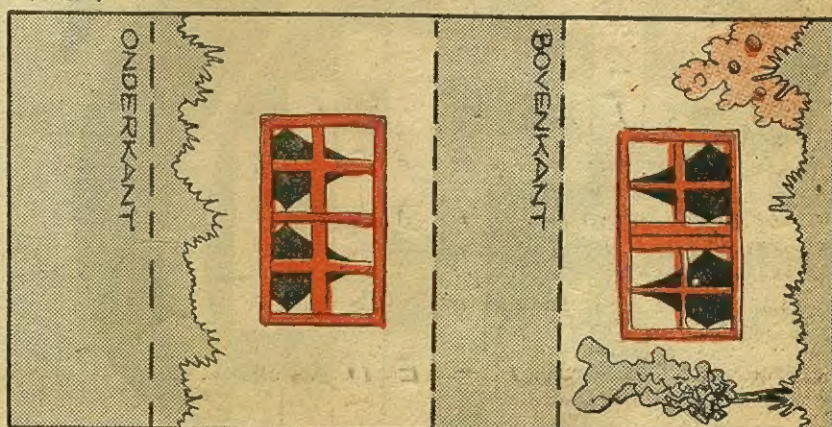 ONDERKANT
BOVENKANT